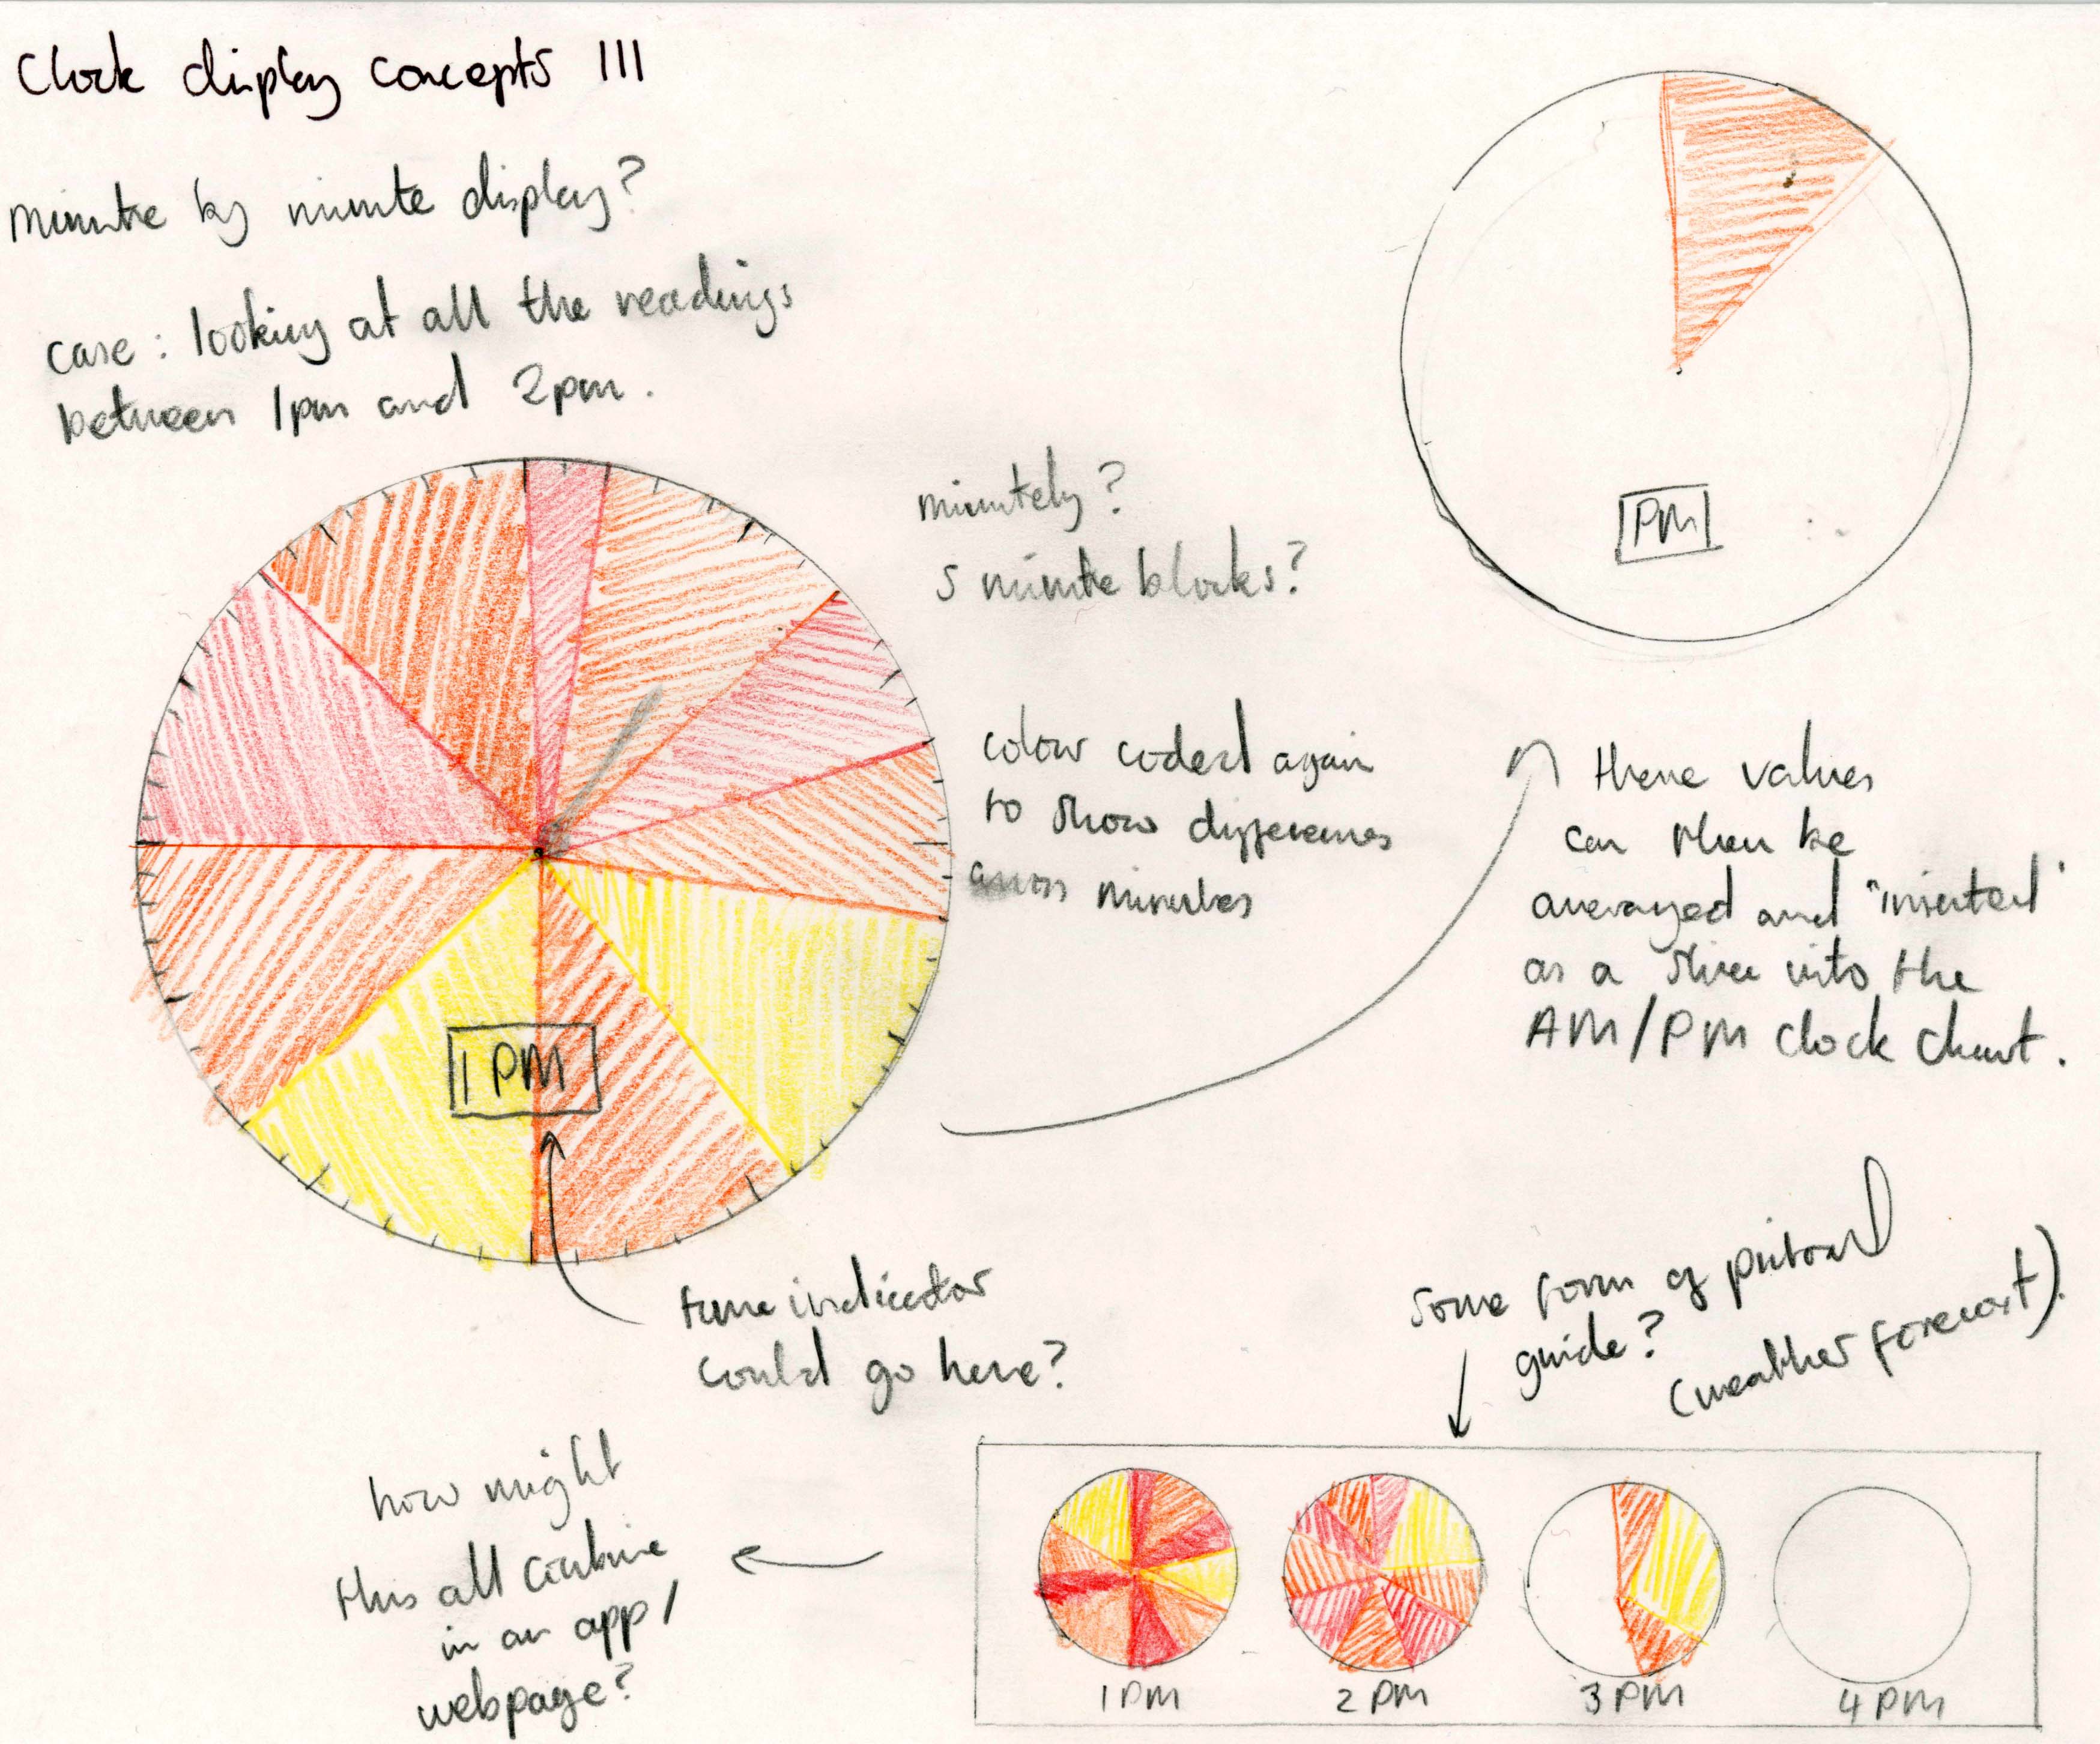 Clock display concepts III
minute by minute display?
case: looking at all the readings
between 1pm and 2pm.
PM
minutely?
5 minute blocks?
colour coded again
to show differences
across minutes
these values
can then be
averaged and "inserted"
as a slice into the
AM/PM clock chart.
1 PM
time indicator
could go here?
some form of pictorial
guide?
(weather forecast).
how might
this all combine
in an app/
webpage?
1 PM
2 PM
3 PM
4 PM